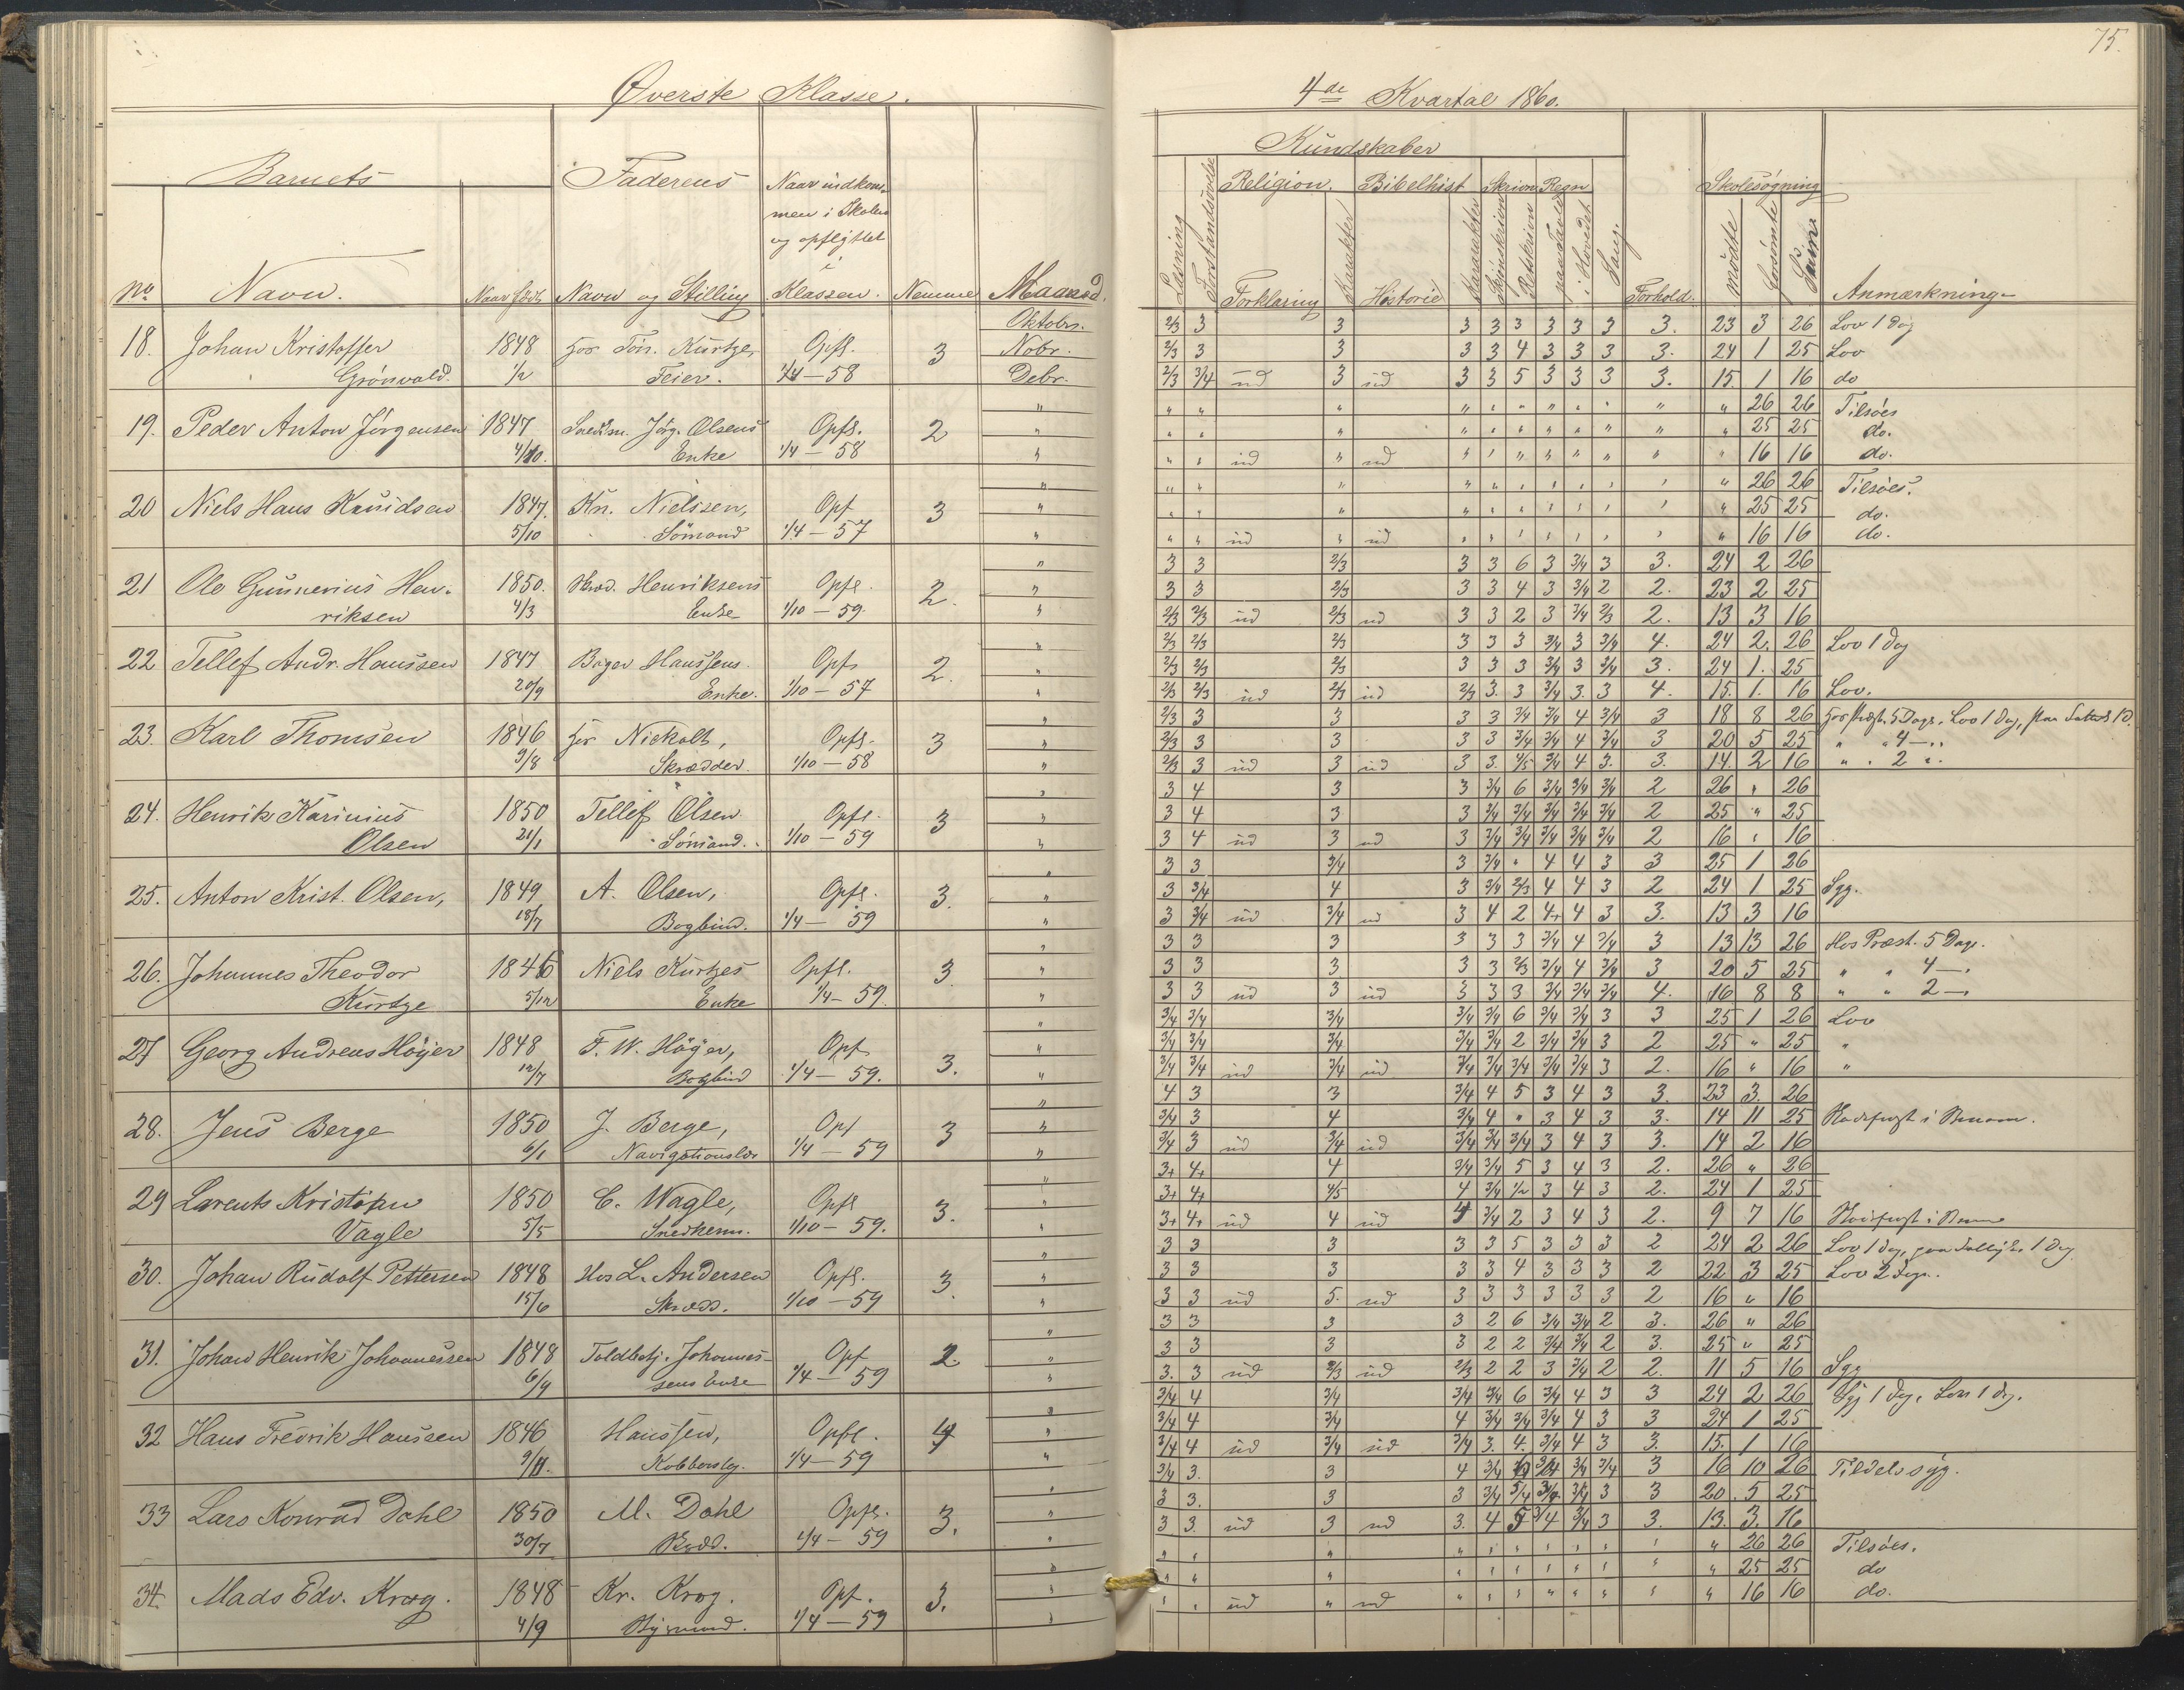 75.
Øverste Klasse.
4de Kvartal 1860.
Barnets
Faderens
Naar indkom-
men i Skolen
og opflyttet
i
Klassen.
No
Navn.
Naar født
Navn og Stilling
Nemme
Maaned.
Kundskaber
Læsning
Forstandsøvelse
Religion.
Forklaring
Karakter
Bibelhist
Historie
Karakter
Skrivn
Skjönskrivn
Retskrivn
Regn
paa Tavle
i Hovedet
Sang.
Forhold.
Skolesøgning
mödte
forsömte
Sum
Anmærkning
18. Johan Kristoffer 1848 hos Tön. Kurtze, Opfl. 3 Oktobr. 2/3 3 3 3 3 3 3 3 3 3. 23 3 26 Lov 1 dag
Grönvold. 1/2 Feier. 1/4 – 58 Nobr. 2/3 3 3 3 3 4 3 3 3 3. 24 1 25 Lov
Debr. 2/3 3/4 ud 3 ud 3 3 5 3 3 3 3. 15 1 16 do
19. Peder Anton Jörgensen 1847 Snedkm. Jörg. Olsens Opfl. 2 " 26 26 Tilsöes
4/10. Enke 1/4 – 58 " 25 25 do.
ud ud " 16 16 do.
20 Niels Hans Knudsen 1847. Kn. Nielssen, Opf 3 " 26 26 Tilsöes.
5/10 Sömand 1/4 – 57 " 25 25 do.
ud ud " 16 16 do.
21 Ole Gunnerius Hen- 1850. Skræd. Henriksens Opfl. 2. 3 3 2/3 3 3 6 3 3/4 3 3. 24 2 26
riksen 4/3 Enke 1/10 – 59. 3 3 2/3 3 3 4 3 3/4 2 2. 23 2 25
2/3 2/3 ud 2/3 ud 3 3 2 3 3/4 2/3 2. 13 3 16
22 Tellef Andr. Hanssen 1847 Bager Hanssens Opf 2. 2/3 2/3 2/3 3 3 3 3/4 3 3/4 4. 24 2. 26 Lov 1 dag
20/9 Enke. 1/10 – 57 2/3 2/3 2/3 3 3 3 3/4 3 3/4 3. 24 1. 25
2/3 2/3 ud 2/3 ud 2/3 3. 3 3/4 3. 3 4. 15. 1. 16 Lov.
23. Karl Thomsen 1846 hos Nickolt, Opfl. 3 2/3 3 3 3 3 3/4 3/4 4 3/4 3 18 8 26 hos Præst. 5 Dage. Lov 1 dag,
9/8 Skrædder. 1/10 – 58 2/3 3 3 3 3 3/4 3/4 4 3/4 3 20 5 25 " " 4 – "
2/3 3 ud 3 ud 3 3. 4/5 3/4 4 3. 3. 14. 2 16 " " 2 "
24. Henrik Karinius 1850 Tellef Olsen Opfl. 3 3 4 3 3 3/4 6 3/4 3/4 3/4 2 26 " 26
Olsen 21/1 Sömand. 1/10 – 59 3 4 3 3 3/4 3/4 3/4 3/4 3/4 2 25 " 25
3 4 ud 3 ud 3 3/4 3/4 3/4 3/4 3/4 2 16 " 16
25. Anton Krist. Olsen, 1849 A. Olsen, Opfl. 3. 3 3 3/4 3 3/4 " 4 4 3 3 25 1 26
18/7 Bogbind. 1/4 – 59 3 3/4 4 3 3/4 2/3 4 4 3 2 24 1 25 Syg.
3 3/4 ud 3/4 ud 3 4 2 4+ 4 3 3. 13 3 16
26. Johannes Theodor 1846 Niels Kurtzes Opfl. 3. 3 3 3 3 3 3 3/4 4 3/4 3 13 13 26 Hos Præst. 5 Dage.
Kurtze 5/12 Enke 1/4 – 59. 3 3 3 3 3 2/3 3/4 4 3/4 3 20 5 25 " " 4 – "
3 3 ud 3 ud 3 3 3 3/4 3/4 3/4 4. 16 8 8 " " 2 – "
27 Georg Andreas Höyer 1848 F. W. Höyer, Opf 3. 3/4 3/4 3/4 3/4 3/4 6 3/4 3/4 3 3 25 1 26 Lov
12/7 Bogbind 1/4 – 59. 3/4 3/4 3/4 3/4 3/4 2 3/4 3/4 3 2 25 " 25 "
3/4 3/4 ud 3/4 ud 3/4 3/4 3/4 3/4 3/4 3 2. 16 " 16 "
28. Jens Berge 1850 J. Berge, Opf 3 4 3 3 3/4 4 5 3 4 3 3. 23 3. 26
6/1 Navigationslær 1/4 – 59 3/4 3 4 3/4 4 " 3 4 3 3. 14 11 25
3/4 3 ud 3/4 ud 3/4 3/4 3/4 3 4 3 3. 14 2 16
29 Larents Kristian 1850 C. Wagle, Opfl 3. 3+ 4+ 4 3/4 3/4 5 3 4 3 2. 26 " 26
Vagle 5/5 Snedkerm. 1/10 – 59. 3+ 4+ 4/5 4 3/4 1/2 3 4 3 2. 24 1 25
3+ 4+ ud 4 ud 4 3/4 2 3 4 3 2. 9 7 16
30. Johan Rudolf Pettersen 1848 Hos L. Andersen Opfl. 3. 3 3 3 3 3 5 3 3 3 2 24 2 26 Lov 1 dag, 1 dag
15/6 Skræd. 1/10 – 59 3 3 3 3 3 4 3 3 3 2 22 3 25 Lov 2 Dage.
3 3 ud 5. ud 3 3 3 3 3 3 2 16 " 16
31. Johan Henrik Johannessen 1848 Toldbetj. Johannes- Opf 2 3 3 3 3 2 6 3/4 3/4 2 3. 26 " 26
6/9 sens Enke 1/4 – 59 3 3 3 3 2 2 3/4 3/4 2 3. 25 " 25
3. 3 ud 2/3 ud 2/3 2 2 3 3/4 2 2. 11 5 16 Syg
32 Hans Fredrik Hanssen 1846 Hanssen, Opfl. 4 3/4 4 3/4 3/4 3/4 6 3/4 4 3 3 24 2 26 Syg 1 dag, Lov 1 dag.
9/11. Kobberslg. 1/4 – 59 3/4 4 3/4 4 3/4 3/4 3/4 4 3 3 24 1 25
3/4 4 ud 3/4 ud 3/4 3. 4. 3/4 4 3 3. 15. 1 16
33 Lars Konrad Dahl 1850 M. Dahl Opfl. 3. 3/4 3. 3 4 3/4 6 3/4 3/4 3/4 3 16 10 26 Tildels syg.
30/7 1/4 – 59 3 3. 3 3 3/4 3/4 3/4 3/4 3 3 20. 5 25
3 3. ud 3 ud 3. 4 5 3/4 3/4 3 3. 13. 3. 16
34. Mads Edv. Krog. 1848 Kr. Krog. Opf. 3. " 26 26 Tilsöes.
4/9 1/4 – 59 " 25 25 do
ud ud " 16 16 do.